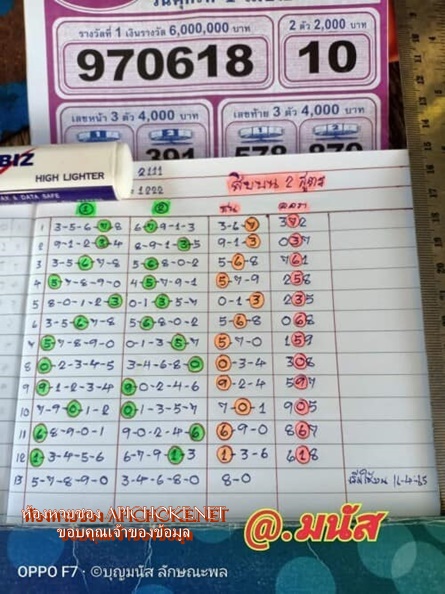 รางวัลที่ 1 เงินรางวัล 6,000,000 บาท
2 ตัว 2,000 บาท
970618
10
เลขหน้า 3 ตัว 4,000 บาท
เลขท้าย 3 ตัว 4,000 บาท
391 578 870
BIZ
HIGH LIGHTER
& DATA SAFE
2111
1222
สิบบน 2 สูตร
1 2 ชน ผลรางวัล
1 3-5-6-7-8 6-7-9-1-3 3-6-7 372
2 9-1-2-3-4 8-9-1-3-5 9-1-3 037
3 3-5-6-7-8 5-6-8-0-2 5-6-8 761
4 5-7-8-9-0 4-5-7-9-1 5-7-9 258
5 8-0-1-2-3 0-1-3-5-7 0-1-3 235
6 3-5-6-7-8 5-6-8-0-2 5-6-8 068
7 5-7-8-9-0 0-1-3-5-7 5-7-0 159
8 0-2-3-4-5 3-4-6-8-0 0-3-4 308
9 9-1-2-3-4 9-0-2-4-6 9-2-4 597
10 7-9-0-1-2 0-1-3-5-7 7-0-1 905
11 6-8-9-0-1 9-0-2-4-6 6-9-0 867
12 1-3-4-5-6 6-7-9-1-3 1-3-6 618
13 5-7-8-9-0 3-4-6-8-0 8-0
ห้องหวยซอง APICHOKE.NET
ขอบคุณเจ้าของข้อมูล
@.มนัส
OPPO F7 · ©บุญมนัส ลักษณะพล